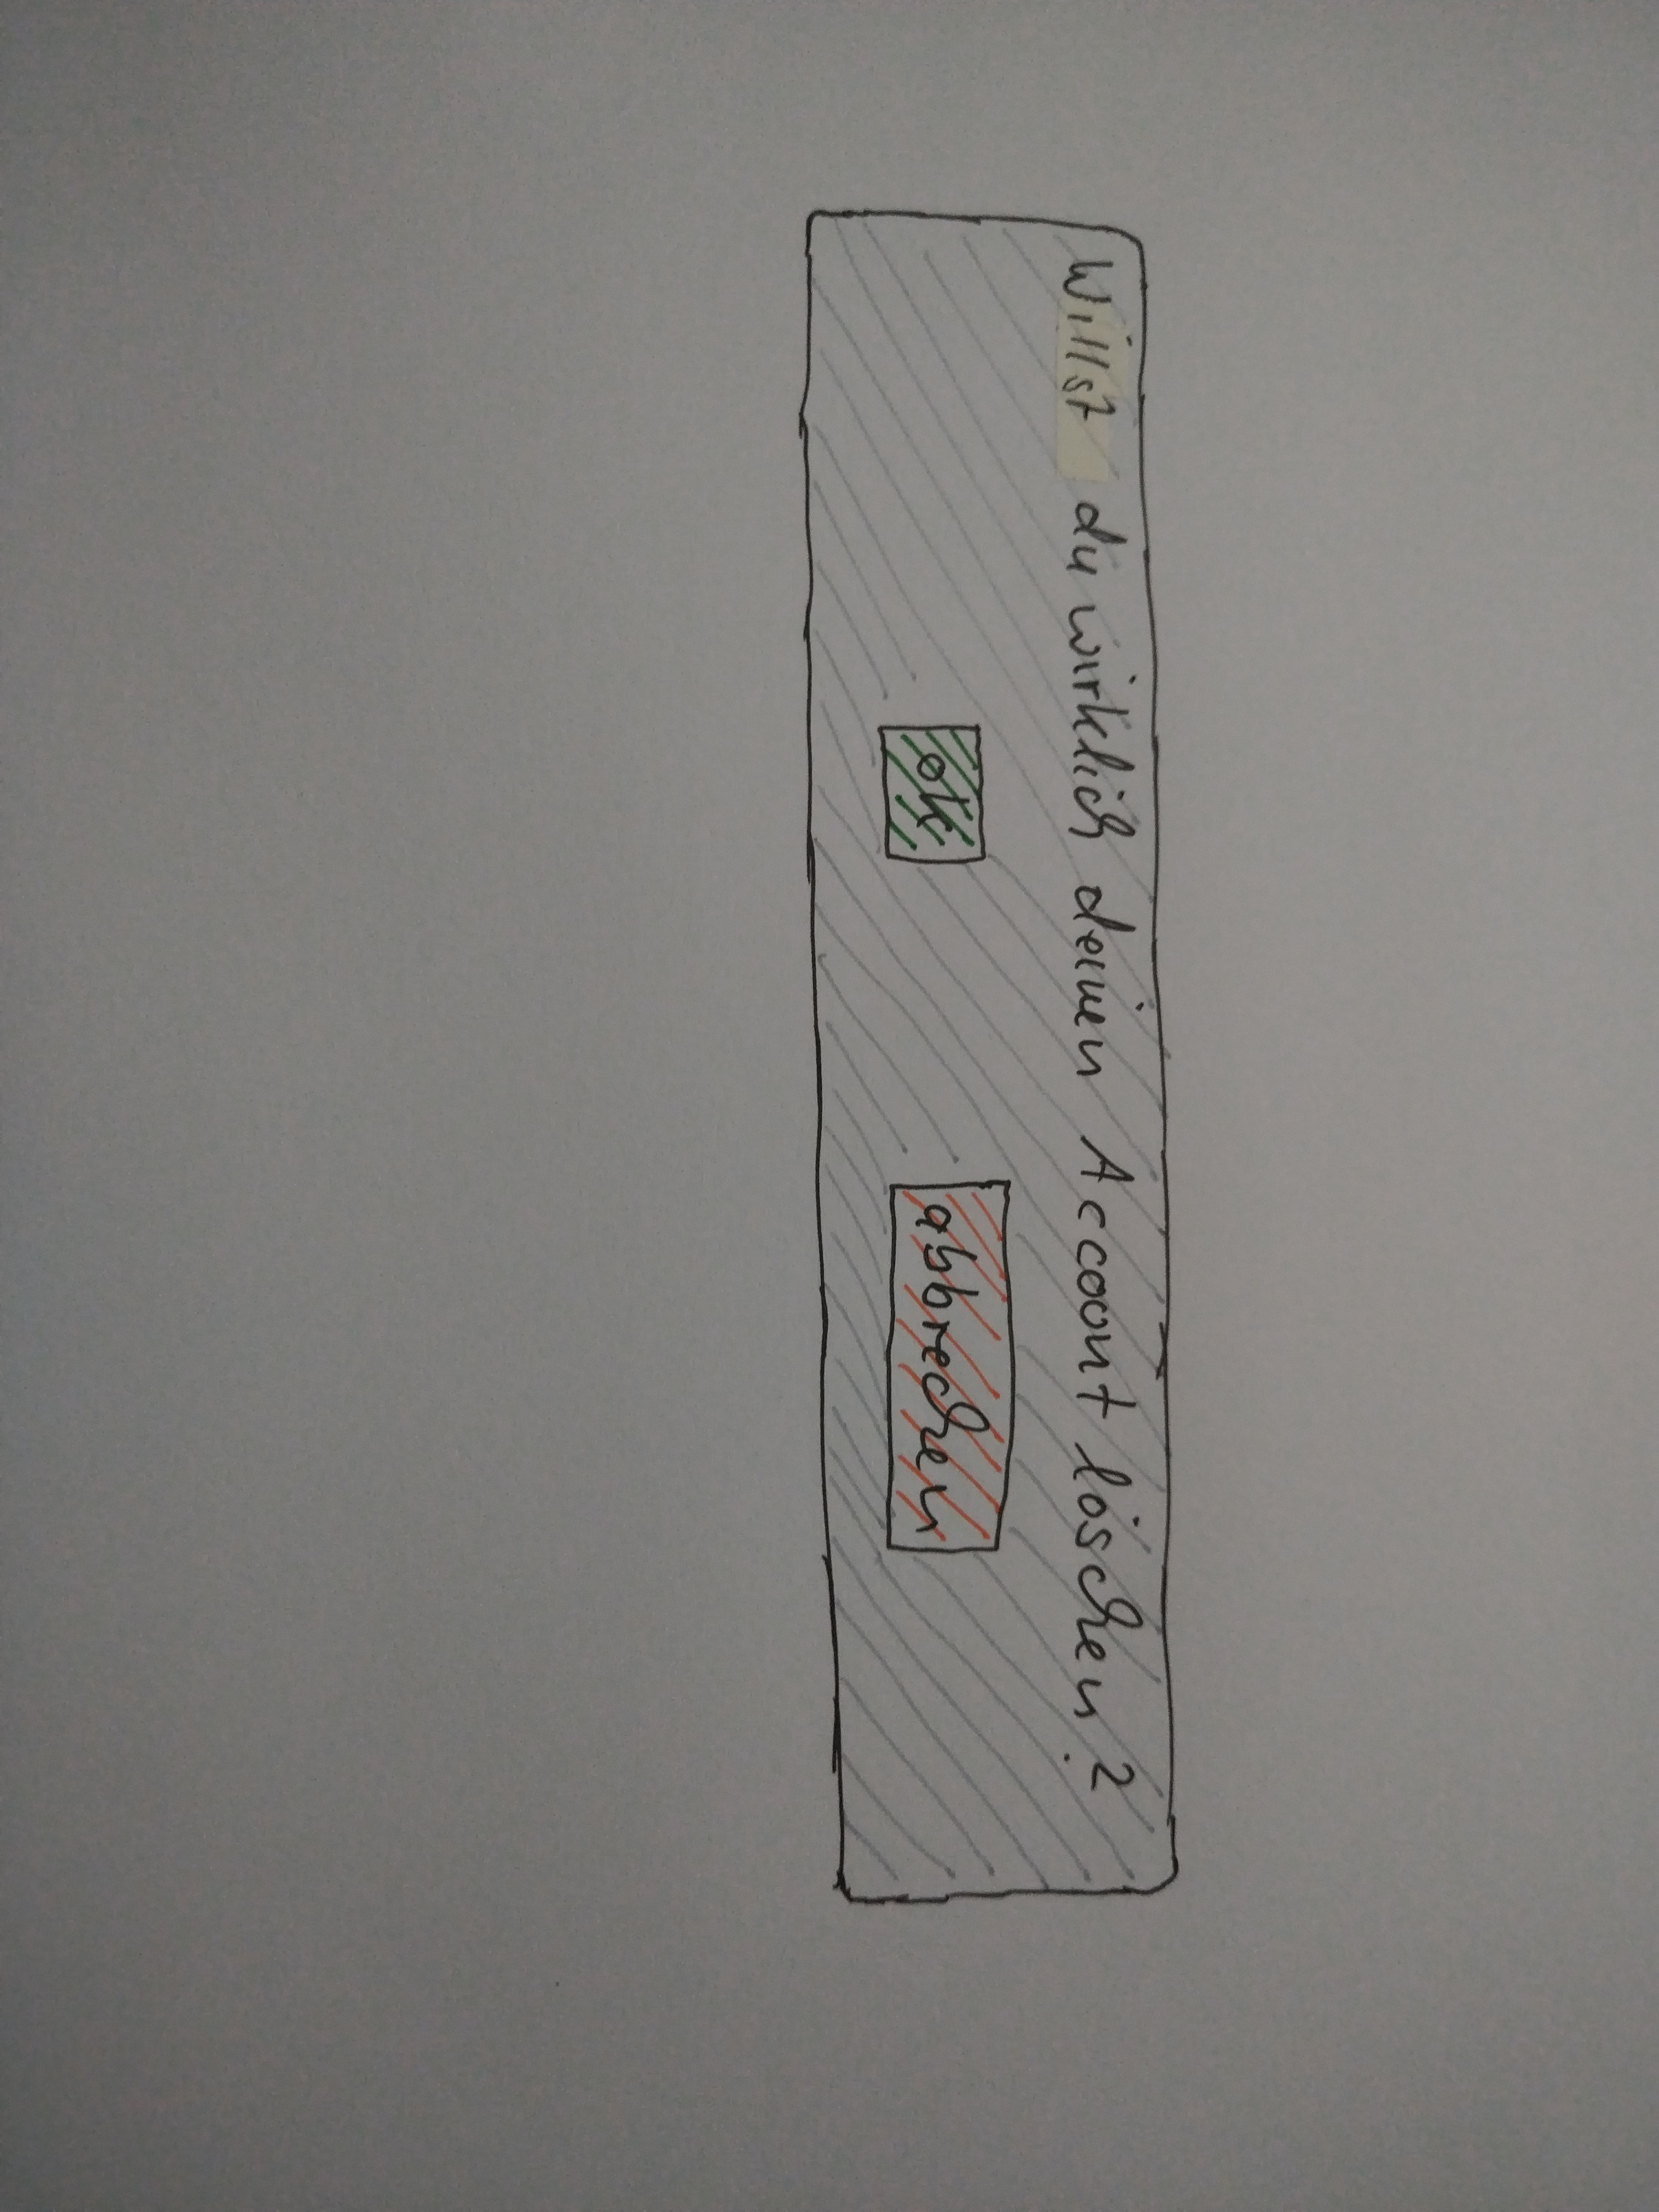 Willst du wirklich deinen Account löschen?
ok abbrechen